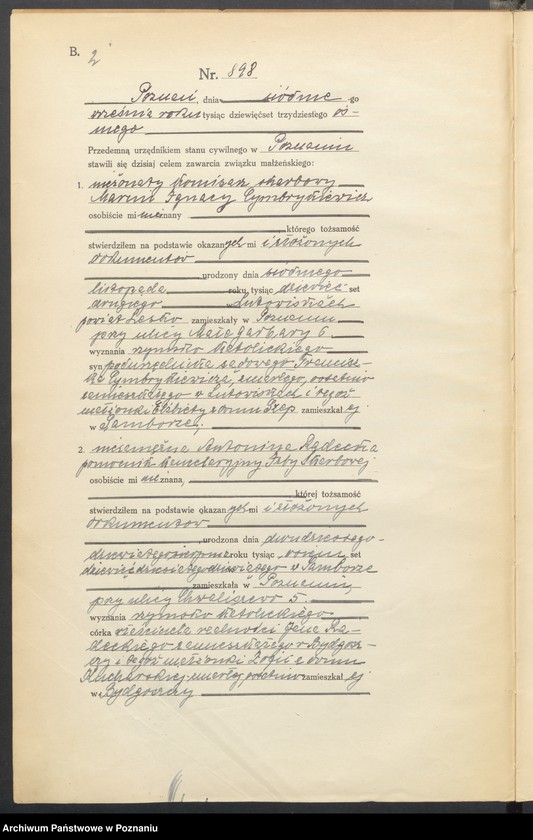 B. 2
Nr. 898
Poznań, dnia siódme-go
września roku tysiąc dziewięćset trzydziestego ós-
mego
Przedemną urzędnikiem stanu cywilnego w Poznaniu
stawili się dzisiaj celem zawarcia związku małżeńskiego:
1. nieżonaty komisarz skarbowy
Ignacy Cymbrykiewicz
osobiście mi nieznany
którego tożsamość
stwierdziłem na podstawie okazanych mi i złożonych
dokumentów
urodzony dnia siódmego
listopada roku tysiąc dziewięć set
drugiego w Lutowiskach
powiat Lesko zamieszkały w Poznaniu
przy ulicy Małe Garbary 6
wyznania rzymsko katolickiego
syn podurzędnika sądowego Francisz-
ka Cymbrykiewicza, zmarłego, ostatnio
zamieszkałego w Lutowiskach i tegoż
małżonki Elżbiety z domu zamieszkałej
w Samborzej.
2. niezamężna Antonina Radecka
pomocnik kancelaryjny Izby Skarbowej
osobiście mi nieznana,
której tożsamość
stwierdziłem na podstawie okazanych mi i złożonych
dokumentów
urodzona dnia dwudziestego-
dziewiątego roku tysiąc osiem set
dziewięćdziesiątego dziewiątego w Samborze
zamieszkała w Poznaniu,
przy ulicy Chwaliszewo 5.
wyznania rzymsko katolickiego
córka właściciela realności Jana Ra-
deckiego zamieszkałego w Bydgosz-
czy i tegoż małżonki Zofii z domu
Kucharskiej, zmarłej, ostatnio zamieszkałej
w Bydgoszczy
Archiwum Państwowe w Poznaniu